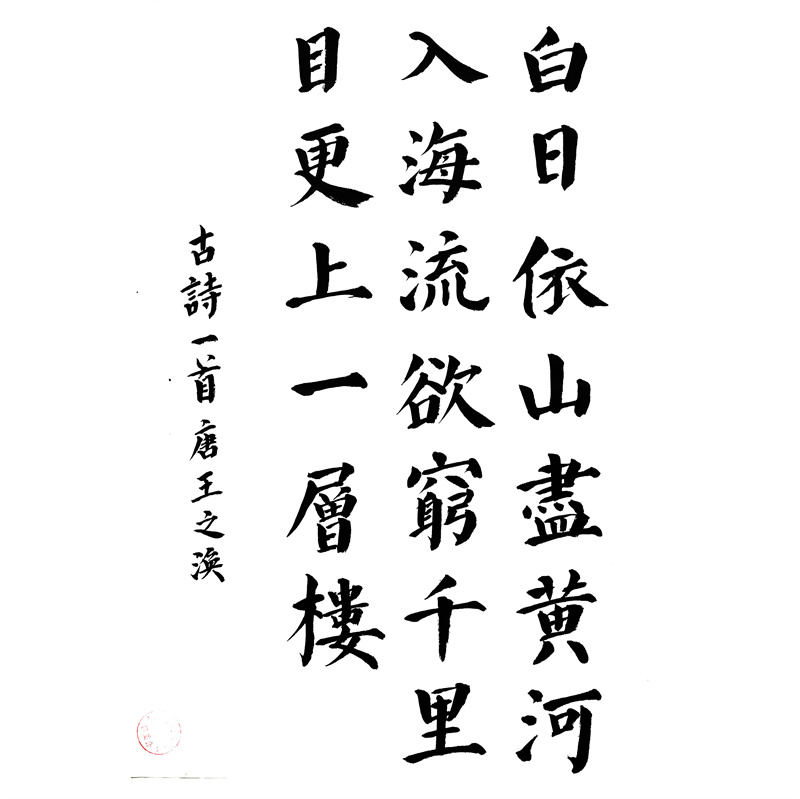 白日依山盡黄河
入海流欲窮千里
目更上一層樓
古詩一首唐王之渙